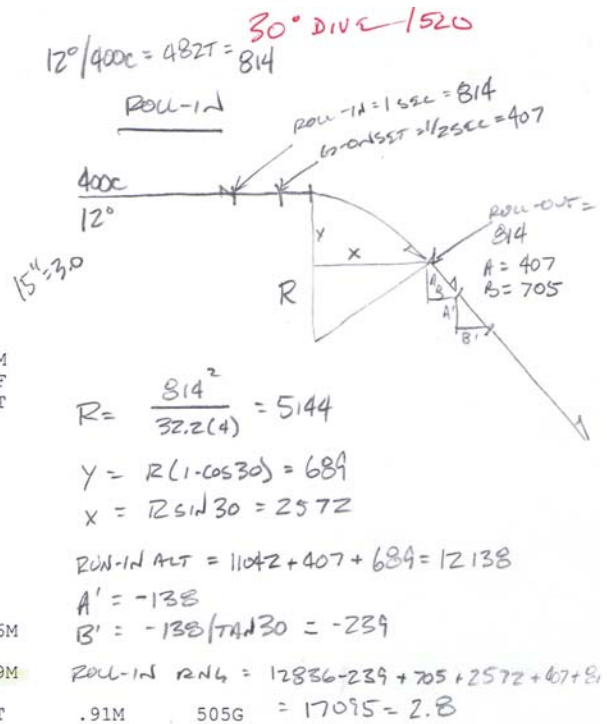 30° DIVE 1520
12°/400C = 482T = 814
ROLL-IN
ROLL-IN = 1 SEC = 814
G-ONSET = 1/2 SEC = 407
400C
12°
15" = 3.0
ROLL-OUT =
814
A = 407
B = 705
Y
X
R
A
B
A'
B'
M
F
T
R = 814² / 32.2(4) = 5144
Y = R(1-COS30) = 689
X = R SIN 30 = 2572
RUN-IN ALT = 11042 + 407 + 689 = 12138
A' = -138
B' = -138/TAN30 = -239
6M
9M
ROLL-IN RNG = 12836 - 239 + 705 + 2572 + 407 + 81
= 17095 = 2.8
T .91M 505G